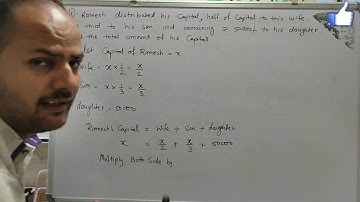 Ramesh distributed his Capital, half of Capital to this wife.
third to his son and remaining ₹ 50000/- to his daughter
the total amount of his Capital
let Capital of Ramesh = x
wife = x × 1/2 = x/2
Son = x × 1/3 = x/3
daughter = 50000
Ramesh's Capital = Wife + Son + daughter
x = x/2 + x/3 + 50000
Multiply Both Side by